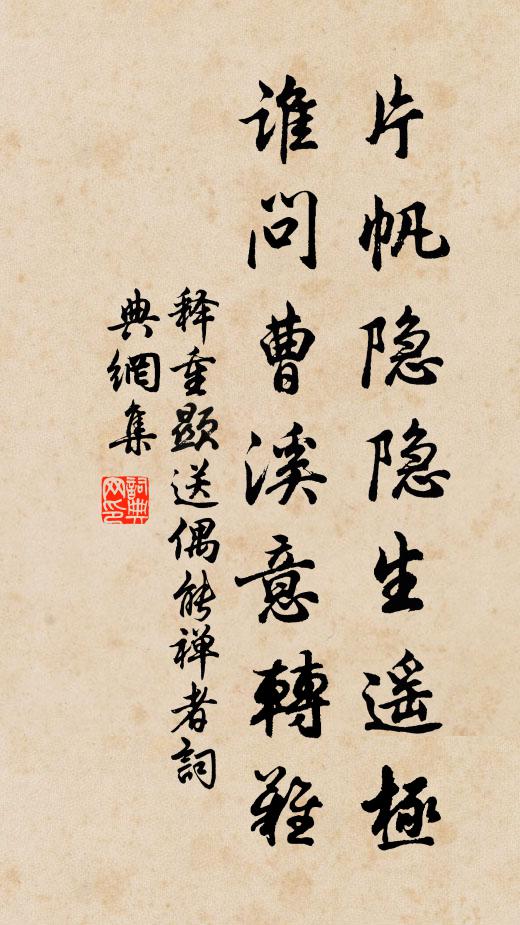 片帆隐隐生遥極
谁问曹溪意轉難
释重顯送偶能禅者詞
典網集
詞典网印